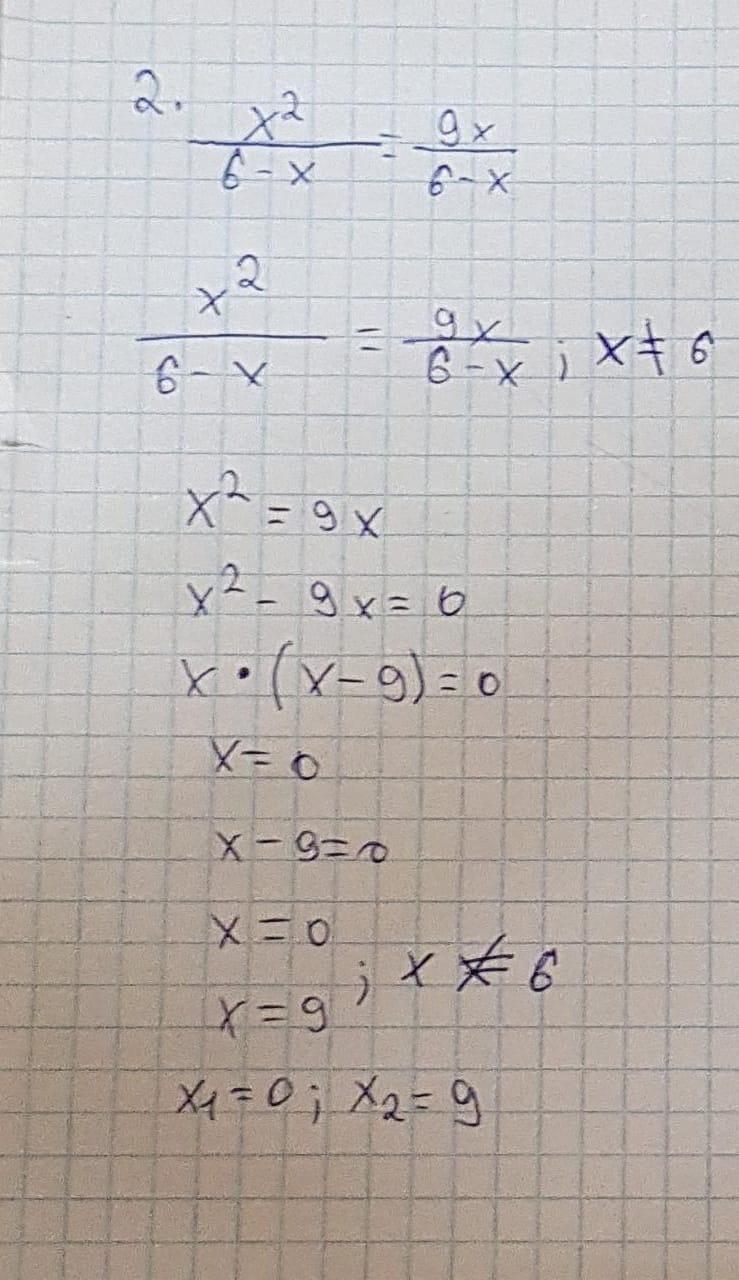 2. x²/(6-x) = 9x/(6-x)
x²/(6-x) = 9x/(6-x) ; x ≠ 6
x² = 9x
x² - 9x = 0
x · (x-9) = 0
x = 0
x - 9 = 0
x = 0
x = 9 ; x ≠ 6
x₁ = 0 ; x₂ = 9